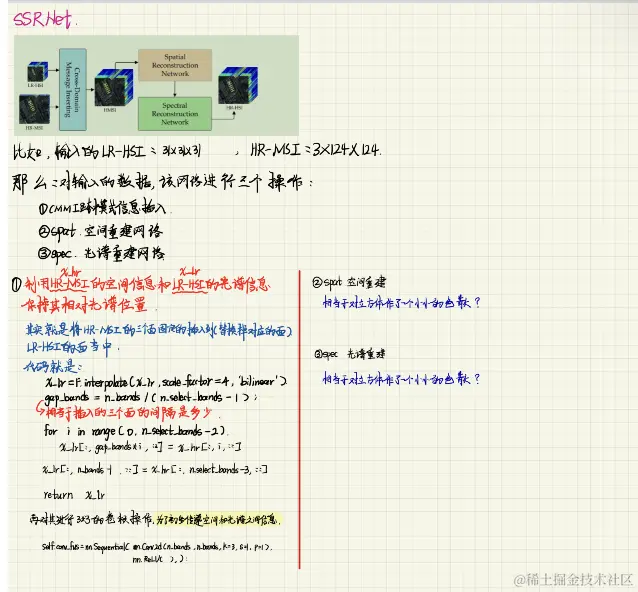 SSRNet.
LR-HSI
HR-MSI
Cross-Domain
Message Inserting
HMSI
Spatial
Reconstruction
Network
Spectral
Reconstruction
Network
HR-HSI
比如, 输入的 LR-HSI = 31×31×31 , HR-MSI = 3×124×124.
那么对输入的数据, 该网络进行三个操作:
①CMMI 跨模式信息插入.
②spat. 空间重建网络
③spec. 光谱重建网络
x_hr x_lr
① 利用HR-MSI的空间信息和LR-HSI的光谱信息
保持其相对光谱位置.
其实就是将HR-MSI的三个面固定的插入到(替换掉对应的面)
LR-HSI的面当中.
代码就是:
x_lr = F.interpolate(x_lr, scale_factor=4, 'bilinear')
gap_bands = n_bands / (n_select_bands - 1);
相当于插入的三个面的间隔是多少.
for i in range(0, n_select_bands-2).
x_lr[:, gap_bands*i, ::] = x_hr[:, i, ::]
x_lr[:, n_bands-1, ::] = x_hr[:, n_select_bands-3, ::]
return x_lr
再对其进行3×3的卷积操作, 为了初步传递空间和光谱之间信息.
self.conv_fus = nn.Sequential( nn.Conv2d(n_bands, n_bands, k=3, s=1, p=1).
nn.ReLU( ), );
②spat 空间重建
相当于对立方体作了一个小小的卷积?
③spec 光谱重建
相当于对立方体作了一个小小的卷积?
@稀土掘金技术社区